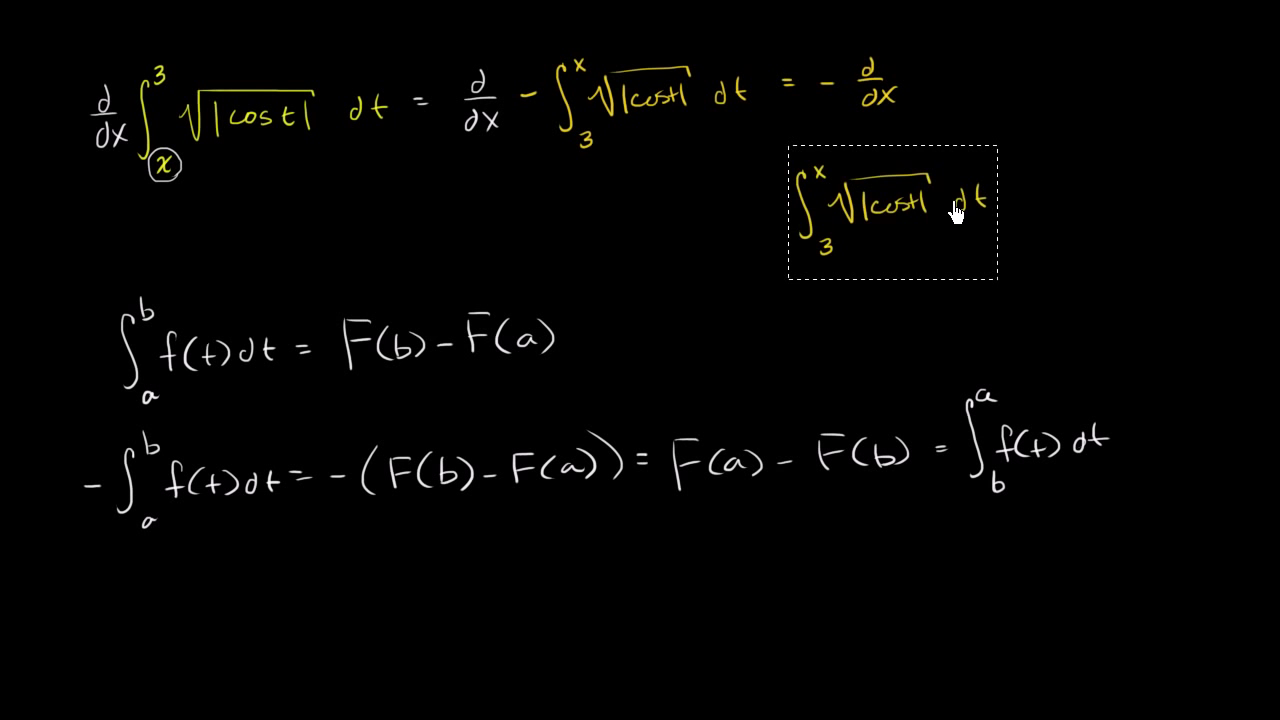 d/dx ∫_x^3 √|cos t| dt = d/dx - ∫_3^x √|cos t| dt = - d/dx
∫_3^x √|cos t| dt
∫_a^b f(t) dt = F(b) - F(a)
- ∫_a^b f(t) dt = - (F(b) - F(a)) = F(a) - F(b) = ∫_b^a f(t) dt